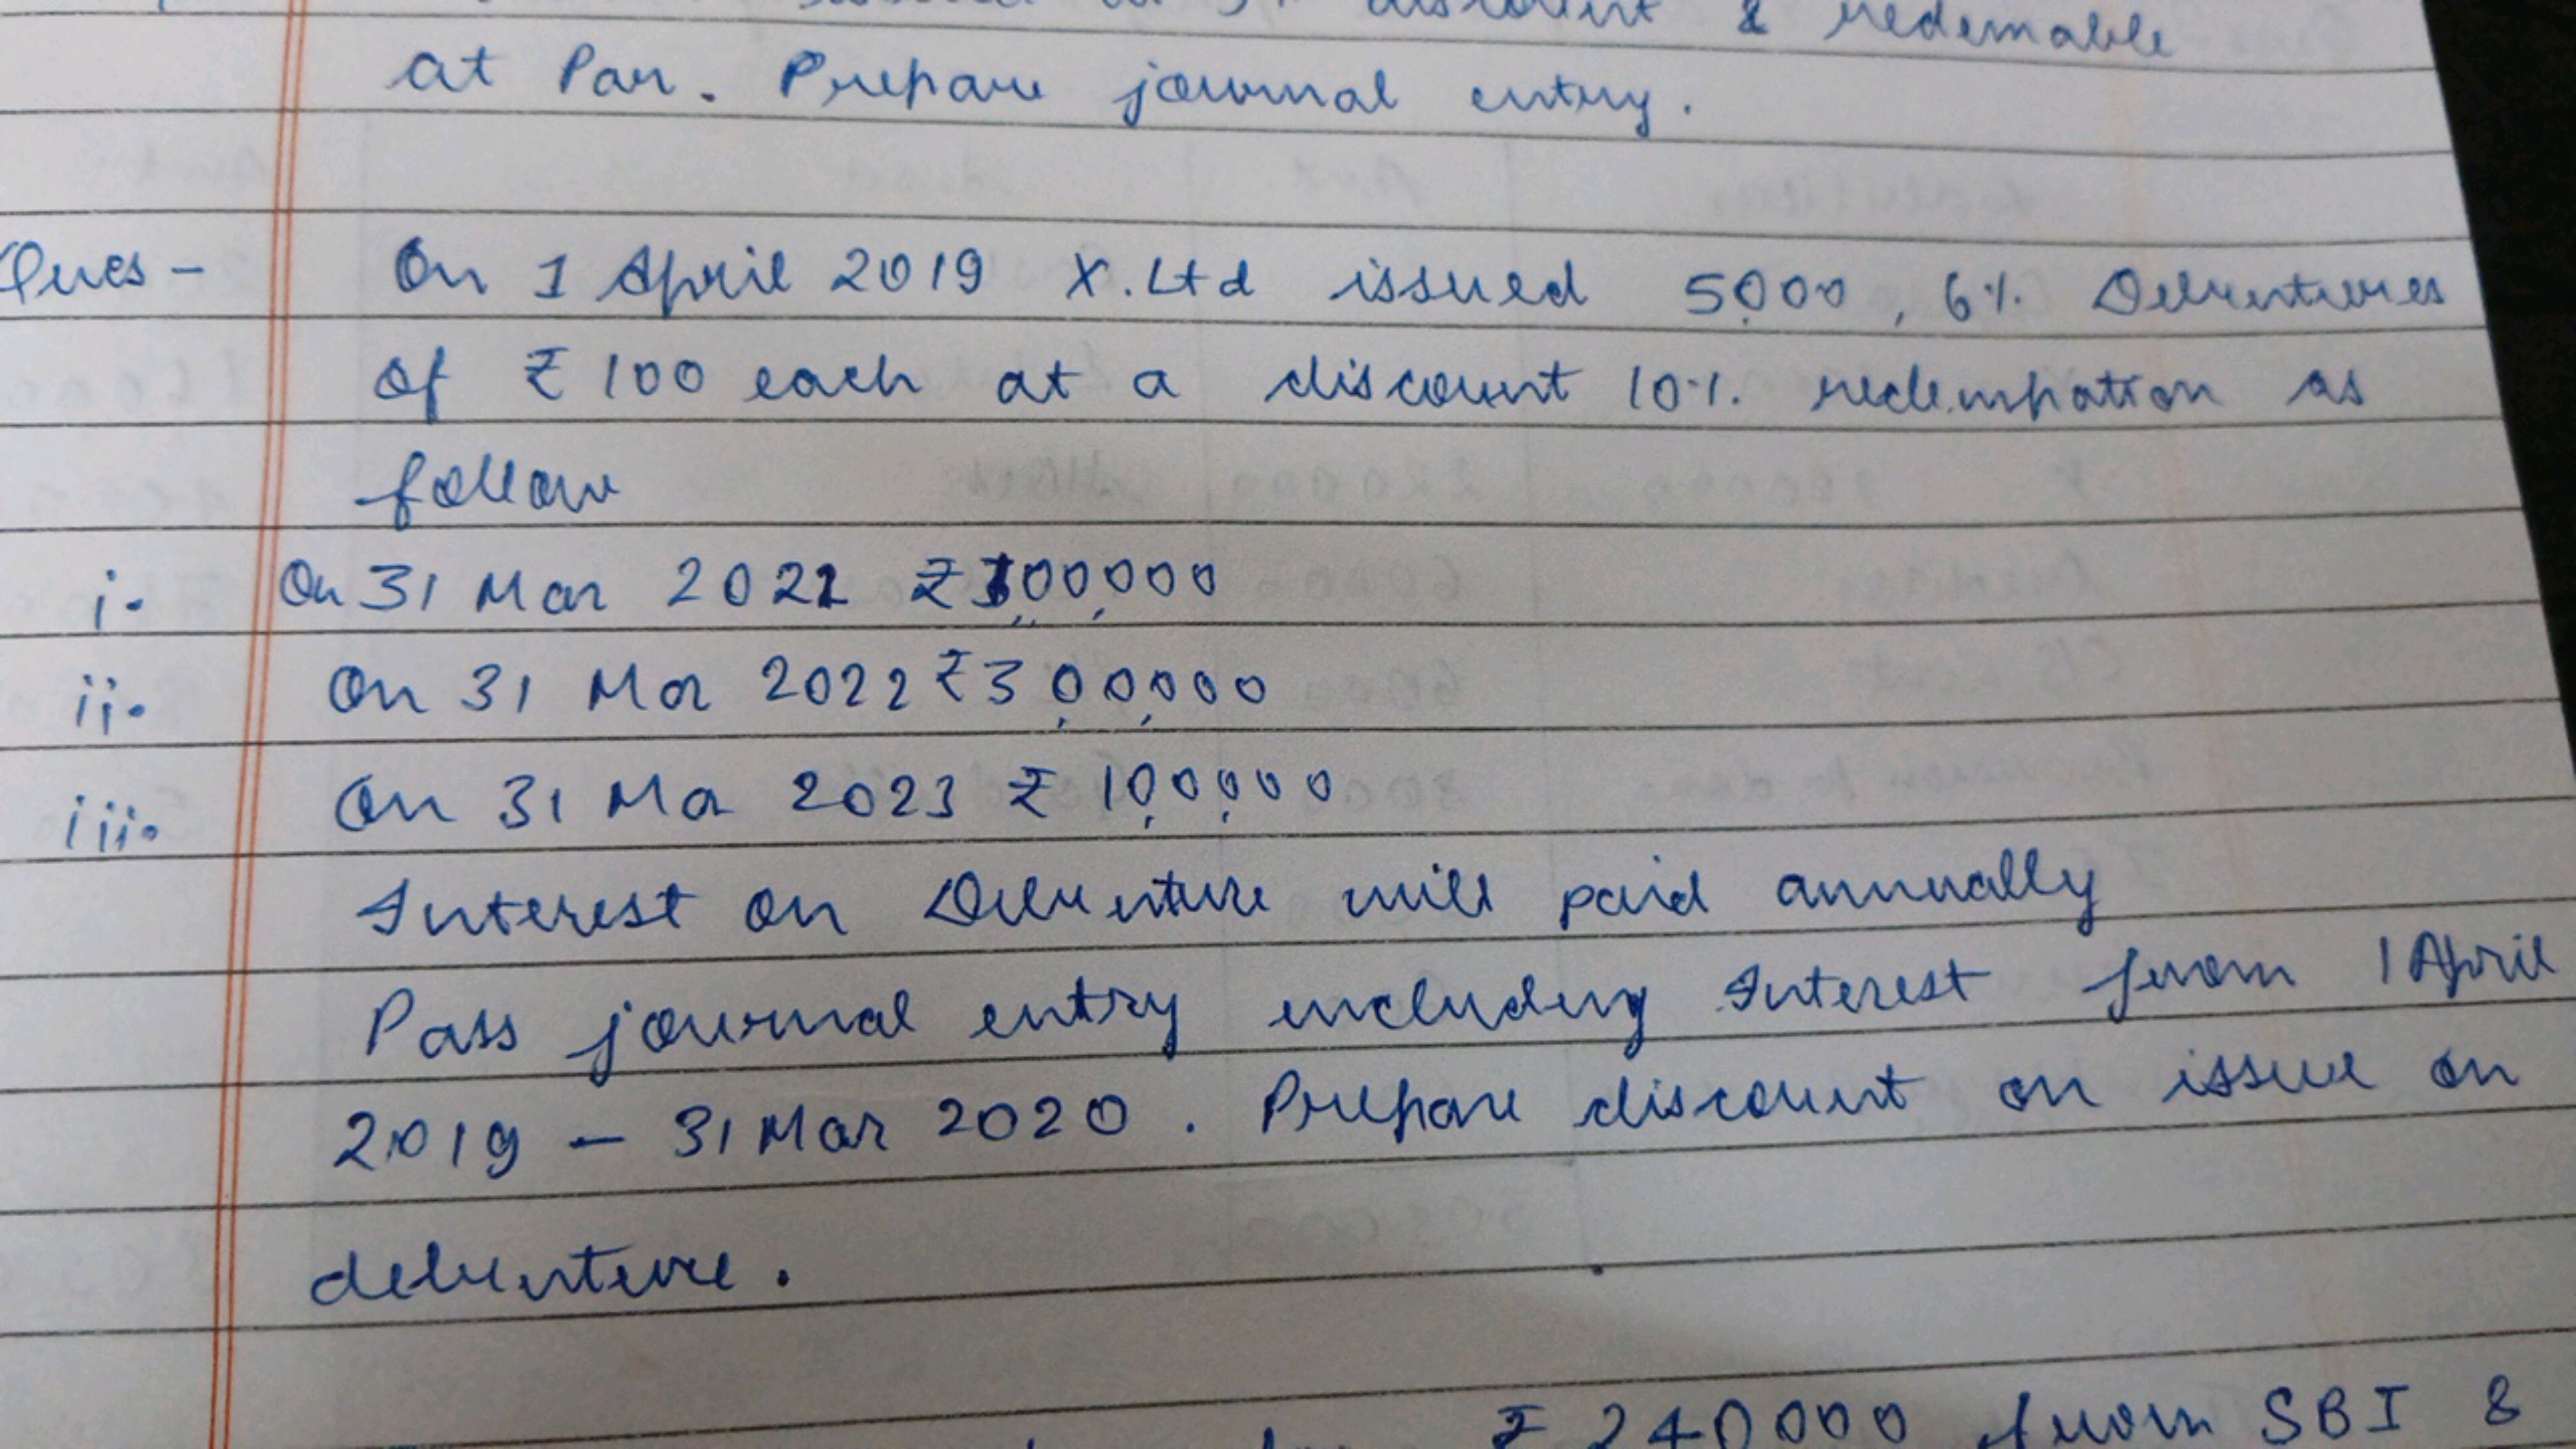 discount & redemable
at Par. Prepare journal entry.
Ques - On 1 April 2019 X.Ltd issued 5,000, 6% Debentures
of ₹100 each at a discount 10%. redempation as
follow
i. On 31 Mar 2021 ₹1,00,000
ii. On 31 Mar 2022 ₹3,00,000
iii. On 31 Mar 2023 ₹ 1,00,000
Interest on Debenture will paid annually
Pass journal entry including Interest from 1 April
2019 - 31 Mar 2020. Prepare discount on issue on
debenture.
₹ 240000 from SBI &